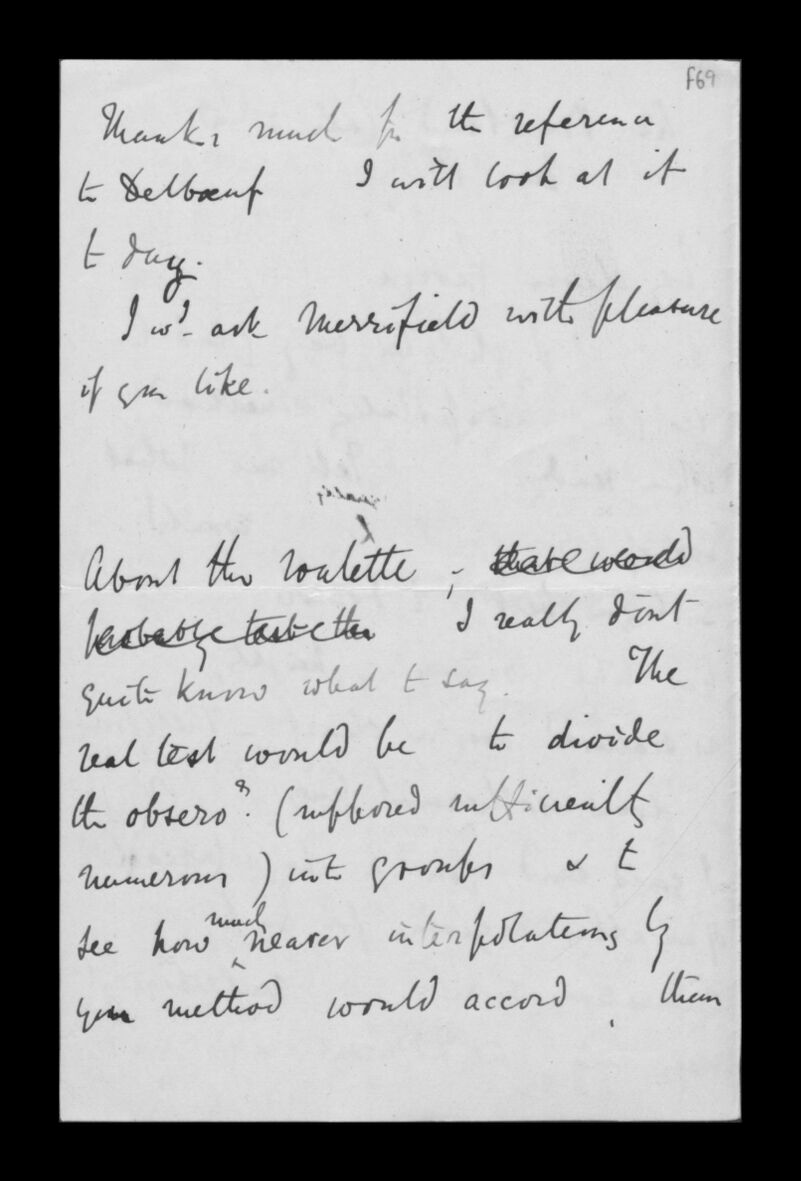 f69
Thanks much for the reference
to Delbœuf I will look at it
to day.
I wd. ask Merrifield with pleasure
if you like.
About the roulette ; that would
probably test the I really dont
quite know what to say. The
real test would be to divide
the observns. (supposed sufficiently
numerous) into groups & to
see how much nearer interpolations by
your method would accord, than